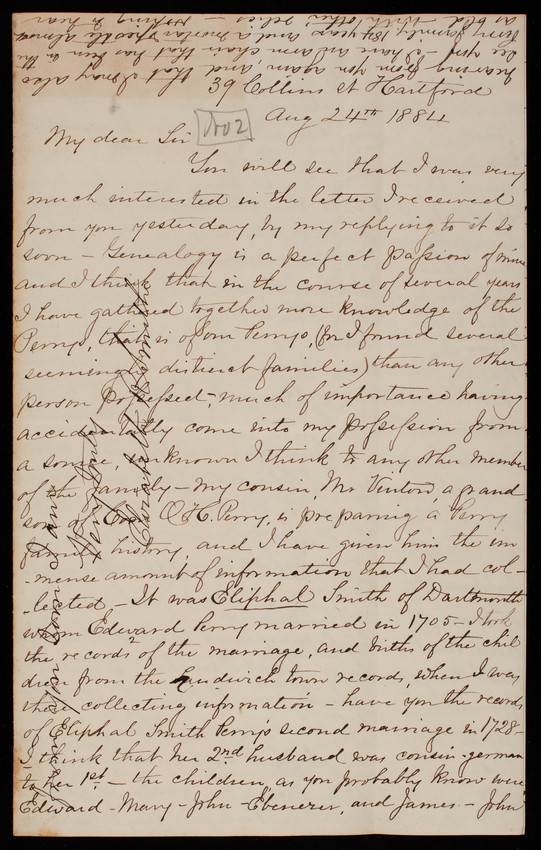 39 Collins st Hartford
Aug 24th 1884
My dear Sir
You will see that I was very
much interested in the letter I received
from you yesterday, by my replying to it so
soon - Genealogy is a perfect passion of mine
and I think that in the course of several years
I have gathered together more knowledge of the
Perrys, that is of our Perrys, (for I found several
seemingly distinct families) than any other
person possessed, much of importance having
accidentally come into my possession from
a source, unknown I think to any other member
of the family - my cousin, Mr Vinton, a grand
son of Com O. H. Perry, is preparing a Perry
family history, and I have given him the im
-mense amount of information that I had col-
-lected, - It was Eliphal Smith of Dartmouth
whom Edward Perry married in 1705 - I took
the records of the marriage, and births of the chil
dren from the Sandwich town records, when I was
there collecting information - have you the records
of Eliphal Smith Perry's second marriage in 1728 -
I think that her 2nd husband was cousin-german
to her 1st - the children, as you probably know were
Edward - Mary - John - Ebenezer, and James - John
hearing from you again, and that I may also
see you - I have an arm chair that has been in the
Perry family 184 years and a mortar & pestle almost
as old - with other relics -